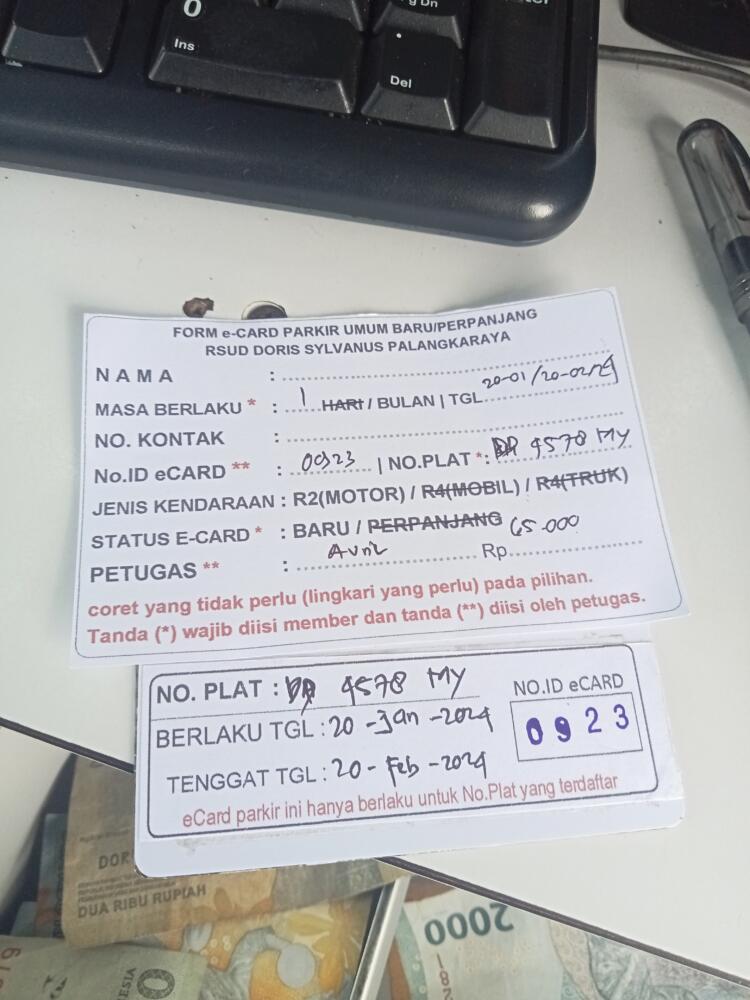 0
Ins
g Dn
.
Del
FORM e-CARD PARKIR UMUM BARU/PERPANJANG
RSUD DORIS SYLVANUS PALANGKARAYA
NAMA :
MASA BERLAKU * : 1 HARI / BULAN | TGL 20-01/20-02
NO. KONTAK :
No.ID eCARD ** : 0923 | NO.PLAT *: 4578 MY
JENIS KENDARAAN : R2(MOTOR) / R4(MOBIL) / R4(TRUK)
STATUS E-CARD * : BARU / PERPANJANG
PETUGAS ** : Rp. 65.000
coret yang tidak perlu (lingkari yang perlu) pada pilihan.
Tanda (*) wajib diisi member dan tanda (**) diisi oleh petugas.
NO. PLAT : 4578 MY
NO.ID eCARD
0923
BERLAKU TGL : 20-Jan-2024
TENGGAT TGL : 20-Feb-2024
eCard parkir ini hanya berlaku untuk No.Plat yang terdaftar
DUA RIBU RUPIAH
2000